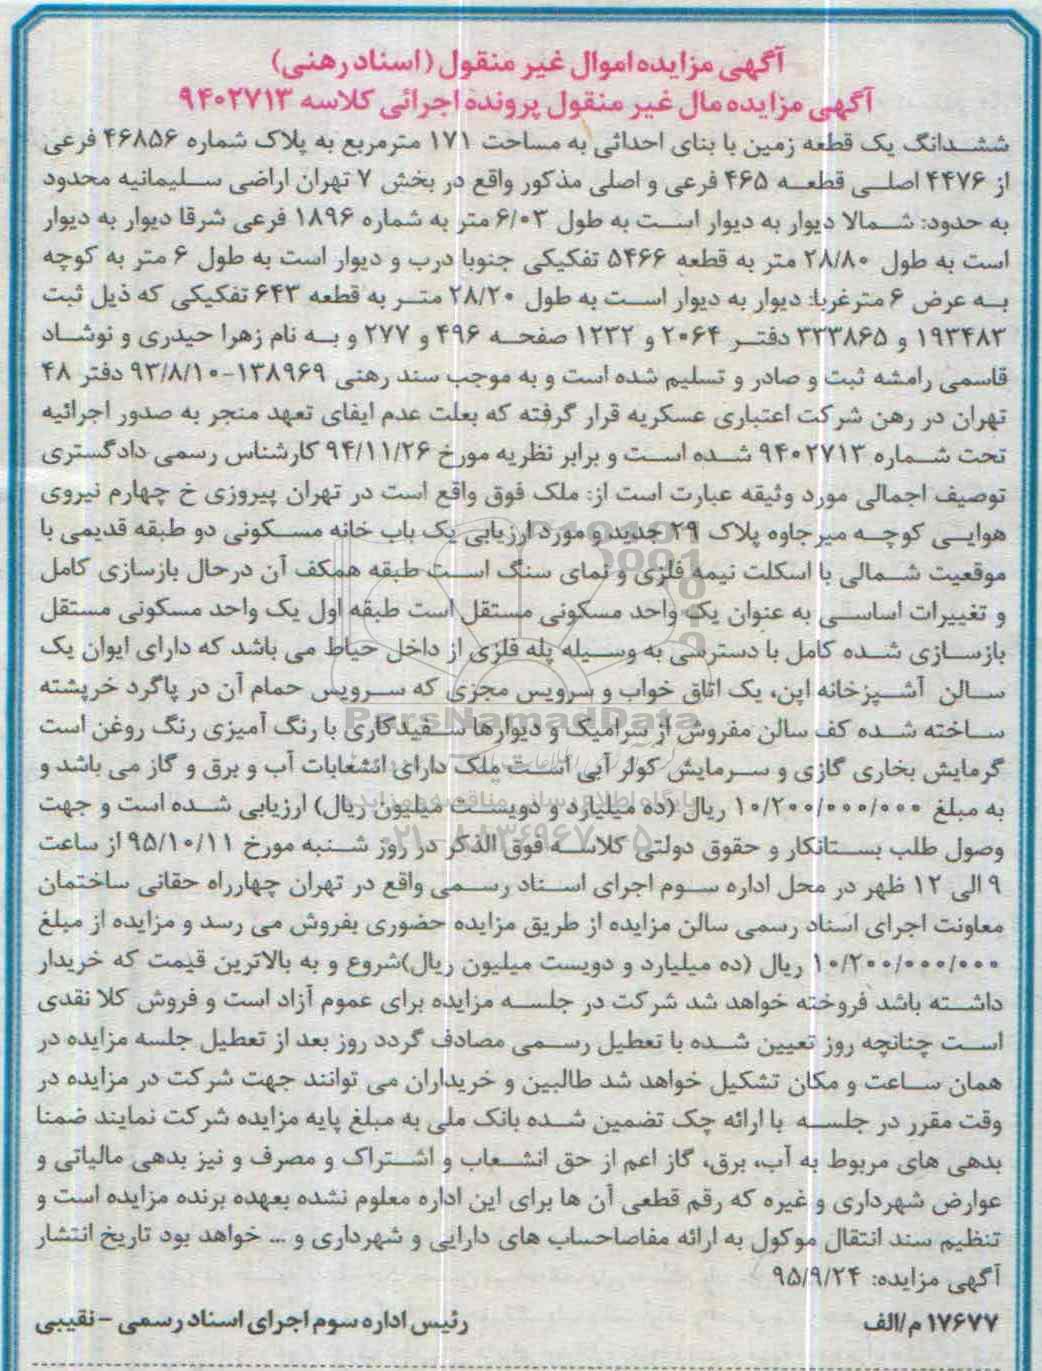 آگهی مزایده اموال غیر منقول (اسناد رهنی)
آگهی مزایده مال غیر منقول پرونده اجرائی کلاسه ۹۴۰۲۷۱۳
ششدانگ یک قطعه زمین با بنای احداثی به مساحت ۱۷۱ مترمربع به پلاک شماره ۴۶۸۵۶ فرعی
از ۴۴۷۶ اصلی قطعه ۴۶۵ فرعی و اصلی مذکور واقع در بخش ۷ تهران اراضی سلیمانیه محدود
به حدود: شمالا دیوار به دیوار است به طول ۶/۰۳ متر به شماره ۱۸۹۶ فرعی شرقا دیوار به دیوار
است به طول ۲۸/۸۰ متر به قطعه ۵۴۶۶ تفکیکی جنوبا درب و دیوار است به طول ۶ متر به کوچه
به عرض ۶ مترغربا: دیوار به دیوار است به طول ۲۸/۲۰ متر به قطعه ۶۴۳ تفکیکی که ذیل ثبت
۱۹۳۴۸۳ و ۳۳۳۸۶۵ دفتر ۲۰۶۴ و ۱۲۳۲ صفحه ۴۹۶ و ۲۷۷ و به نام زهرا حیدری و نوشاد
قاسمی رامشه ثبت و صادر و تسلیم شده است و به موجب سند رهنی ۱۳۸۹۶۹-۹۳/۸/۱۰ دفتر ۴۸
تهران در رهن شرکت اعتباری عسکریه قرار گرفته که بعلت عدم ایفای تعهد منجر به صدور اجرائیه
تحت شماره ۹۴۰۲۷۱۳ شده است و برابر نظریه مورخ ۹۴/۱۱/۲۶ کارشناس رسمی دادگستری
توصیف اجمالی مورد وثیقه عبارت است از: ملک فوق واقع است در تهران پیروزی خ چهارم نیروی
هوایی کوچه میرجاوه پلاک ۲۹ جدید و مورد ارزیابی یک باب خانه مسکونی دو طبقه قدیمی با
موقعیت شمالی با اسکلت نیمه فلزی و نمای سنگ است طبقه همکف آن درحال بازسازی کامل
و تغییرات اساسی به عنوان یک واحد مسکونی مستقل است طبقه اول یک واحد مسکونی مستقل
بازسازی شده کامل با دسترسی به وسیله پله فلزی از داخل حیاط می باشد که دارای ایوان یک
سالن آشپزخانه اپن، یک اتاق خواب و سرویس مجزی که سرویس حمام آن در پاگرد خرپشته
ساخته شده کف سالن مفروش از سرامیک و دیوارها سفیدکاری با رنگ آمیزی رنگ روغن است
گرمایش بخاری گازی و سرمایش کولر آبی است ملک دارای انشعابات آب و برق و گاز می باشد و
به مبلغ ۱۰/۲۰۰/۰۰۰/۰۰۰ ریال (ده میلیارد و دویست میلیون ریال) ارزیابی شده است و جهت
وصول طلب بستانکار و حقوق دولتی کلاسه فوق الذکر در روز شنبه مورخ ۹۵/۱۰/۱۱ از ساعت
۹ الی ۱۲ ظهر در محل اداره سوم اجرای اسناد رسمی واقع در تهران چهارراه حقانی ساختمان
معاونت اجرای اسناد رسمی سالن مزایده از طریق مزایده حضوری بفروش می رسد و مزایده از مبلغ
۱۰/۲۰۰/۰۰۰/۰۰۰ ریال (ده میلیارد و دویست میلیون ریال)شروع و به بالاترین قیمت که خریدار
داشته باشد فروخته خواهد شد شرکت در جلسه مزایده برای عموم آزاد است و فروش کلا نقدی
است چنانچه روز تعیین شده با تعطیل رسمی مصادف گردد روز بعد از تعطیل جلسه مزایده در
همان ساعت و مکان تشکیل خواهد شد طالبین و خریداران می توانند جهت شرکت در مزایده در
وقت مقرر در جلسه با ارائه چک تضمین شده بانک ملی به مبلغ پایه مزایده شرکت نمایند ضمنا
بدهی های مربوط به آب، برق، گاز اعم از حق انشعاب و اشتراک و مصرف و نیز بدهی مالیاتی و
عوارض شهرداری و غیره که رقم قطعی آن ها برای این اداره معلوم نشده بعهده برنده مزایده است و
تنظیم سند انتقال موکول به ارائه مفاصاحساب های دارایی و شهرداری و ... خواهد بود تاریخ انتشار
آگهی مزایده: ۹۵/۹/۲۴
۱۷۶۷۷م/الف
رئیس اداره سوم اجرای اسناد رسمی - نقیبی
ParsNamadData